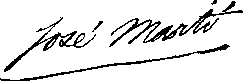 José Martí